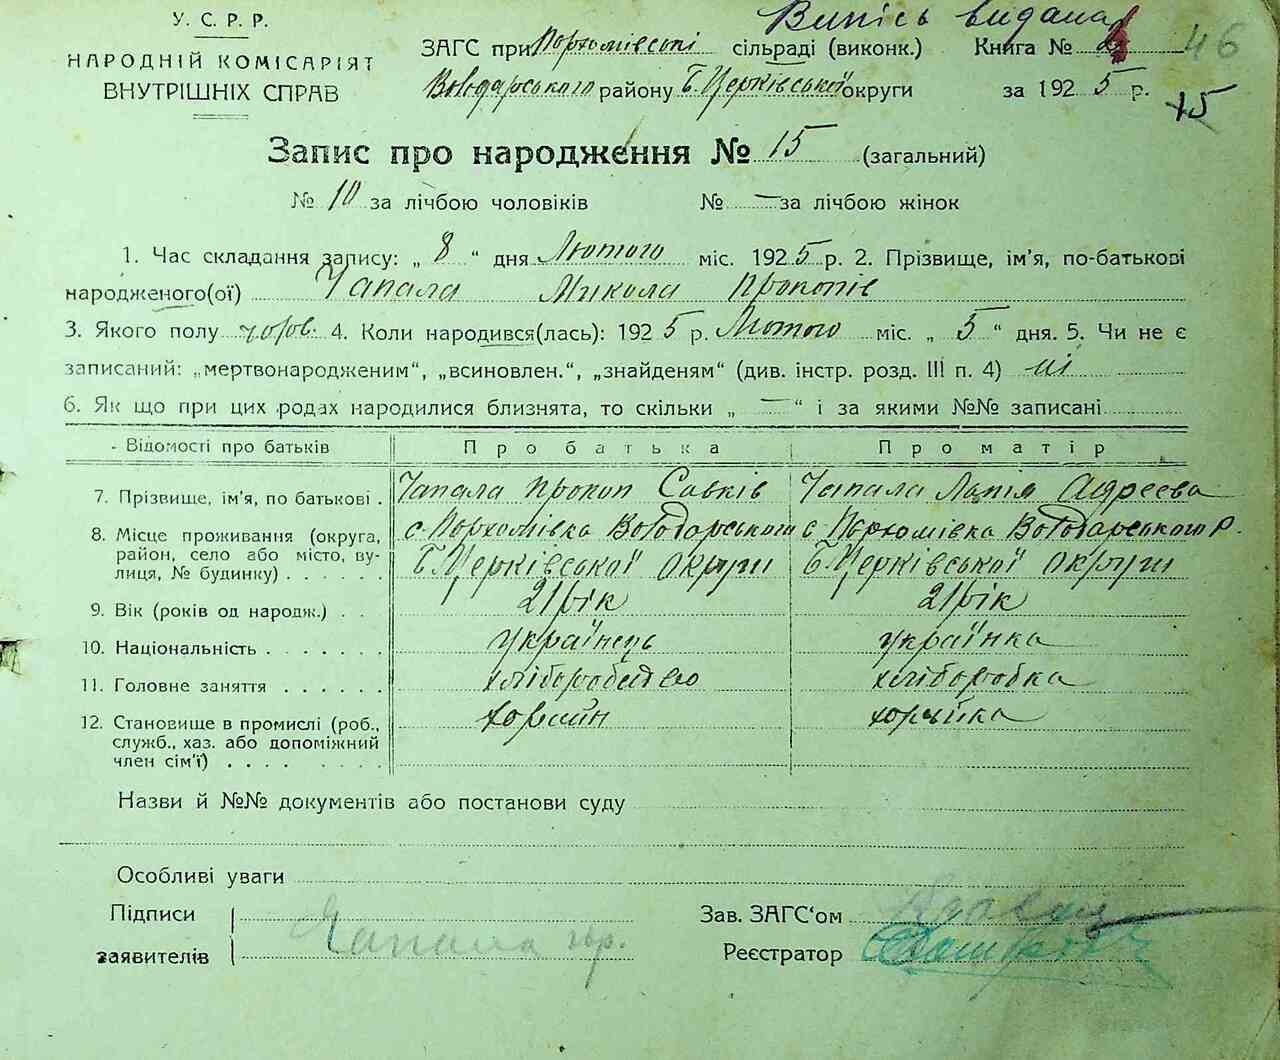 Випісь видана
У. С. Р. Р.
НАРОДНІЙ КОМІСАРІЯТ
ВНУТРІШНІХ СПРАВ
ЗАГС при Пархомівські сільраді (виконк.) Книга № 46
Володарського району Б. Церківської округи за 1925 р.
15
Запис про народження № 15 (загальний)
№ 10 за лічбою чоловіків № — за лічбою жінок
1. Час складання запису: „ 8 “ дня Лютого міс. 1925 р. 2. Прізвище, ім'я, по-батькові
народженого(ої) Чапала Микола Прокопів
3. Якого полу чолов. 4. Коли народився(лась): 1925 р. Лютого міс. „ 5 “ дня. 5. Чи не є
записаний: „мертвонародженим“, „всиновлен.“, „знайденям“ (див. інстр. розд. III п. 4) ні
6. Як що при цих родах народилися близнята, то скільки „ — “ і за якими №№ записані
Відомості про батьків Про батька Про матір
7. Прізвище, ім'я, по батькові . Чапала Прокоп Савків Чапала Андреєва
8. Місце проживання (округа, с. Пархомівка Володарського с Пархомівка Володарського р.
район, село або місто, ву-
лиця, № будинку) . . . . . . Б. Церківської округи Б. Церківської округи
9. Вік (років од народж.) . . 21 рік 21 рік
10. Національність . . . . . . . українець українка
11. Головне заняття . . . . . . хліборобство хліборобка
12. Становище в промислі (роб., хозяїн хозяйка
служб., хаз. або допоміжний
член сім'ї) . . . . . . . . .
Назви й №№ документів або постанови суду
Особливі уваги
Підписи Зав. ЗАГС'ом
заявителів Чапала Реєстратор